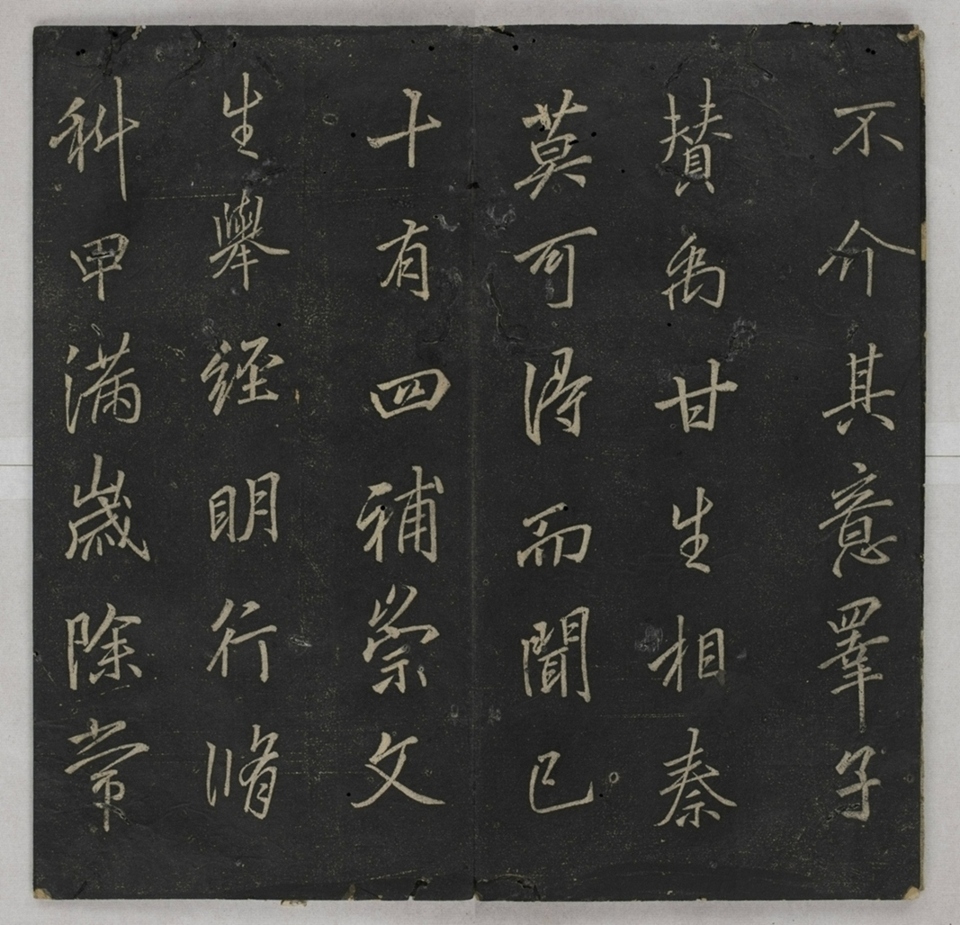 不介其意睪子
攅禹甘生相秦
莫可得而聞已
十有四補崇文
生舉經明行脩
科甲滿歲除常